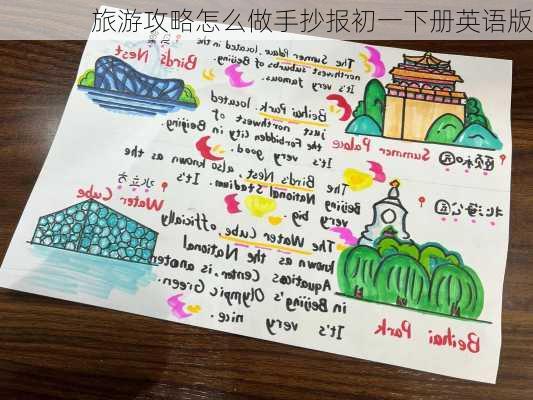 旅游攻略怎么做手抄报初一下册英语版
鸟巢
Bird's Nest
The Summer Palace, located in the
northwest suburbs of Beijing.
It's very famous.
Summer Palace
颐和园
Beihai Park, located
just northwest of
the Forbidden City in Beijing.
It's very good.
The Bird's Nest, also known as the
Beijing National Stadium. It's
very big.
水立方
Water Cube
北海公园
Beihai Park
The Water Cube, officially
known as the National
Aquatics Center, is
in Beijing's Olympic Green.
It's very nice.